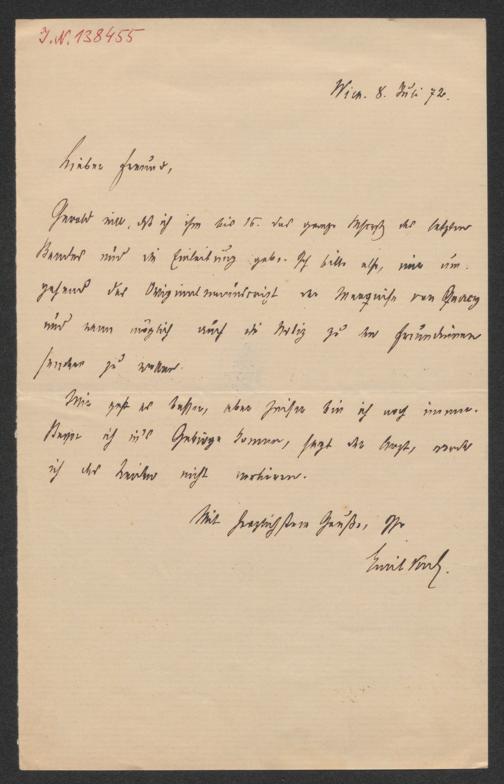 J.N. 138455
Wien. 8. Juli 72.
Lieber Freund,
Gerold will, daß ich ihm bis 15. das ganze des letzten
Bandes und die Einleitung gebe. Ich bitte also, mir um-
gehend das Originalmanuscript der Marquise von Quercy
und wenn möglich auch die Notiz zu den Freundinnen
senden zu wollen.
Mir geht es besser, aber heiser bin ich noch immer.
Bevor ich in's Gebirge komme, sagt der Arzt, werde
ich das nicht verlieren.
Mit herzlichsten Grüßen, Ihr
Emil Kuh.